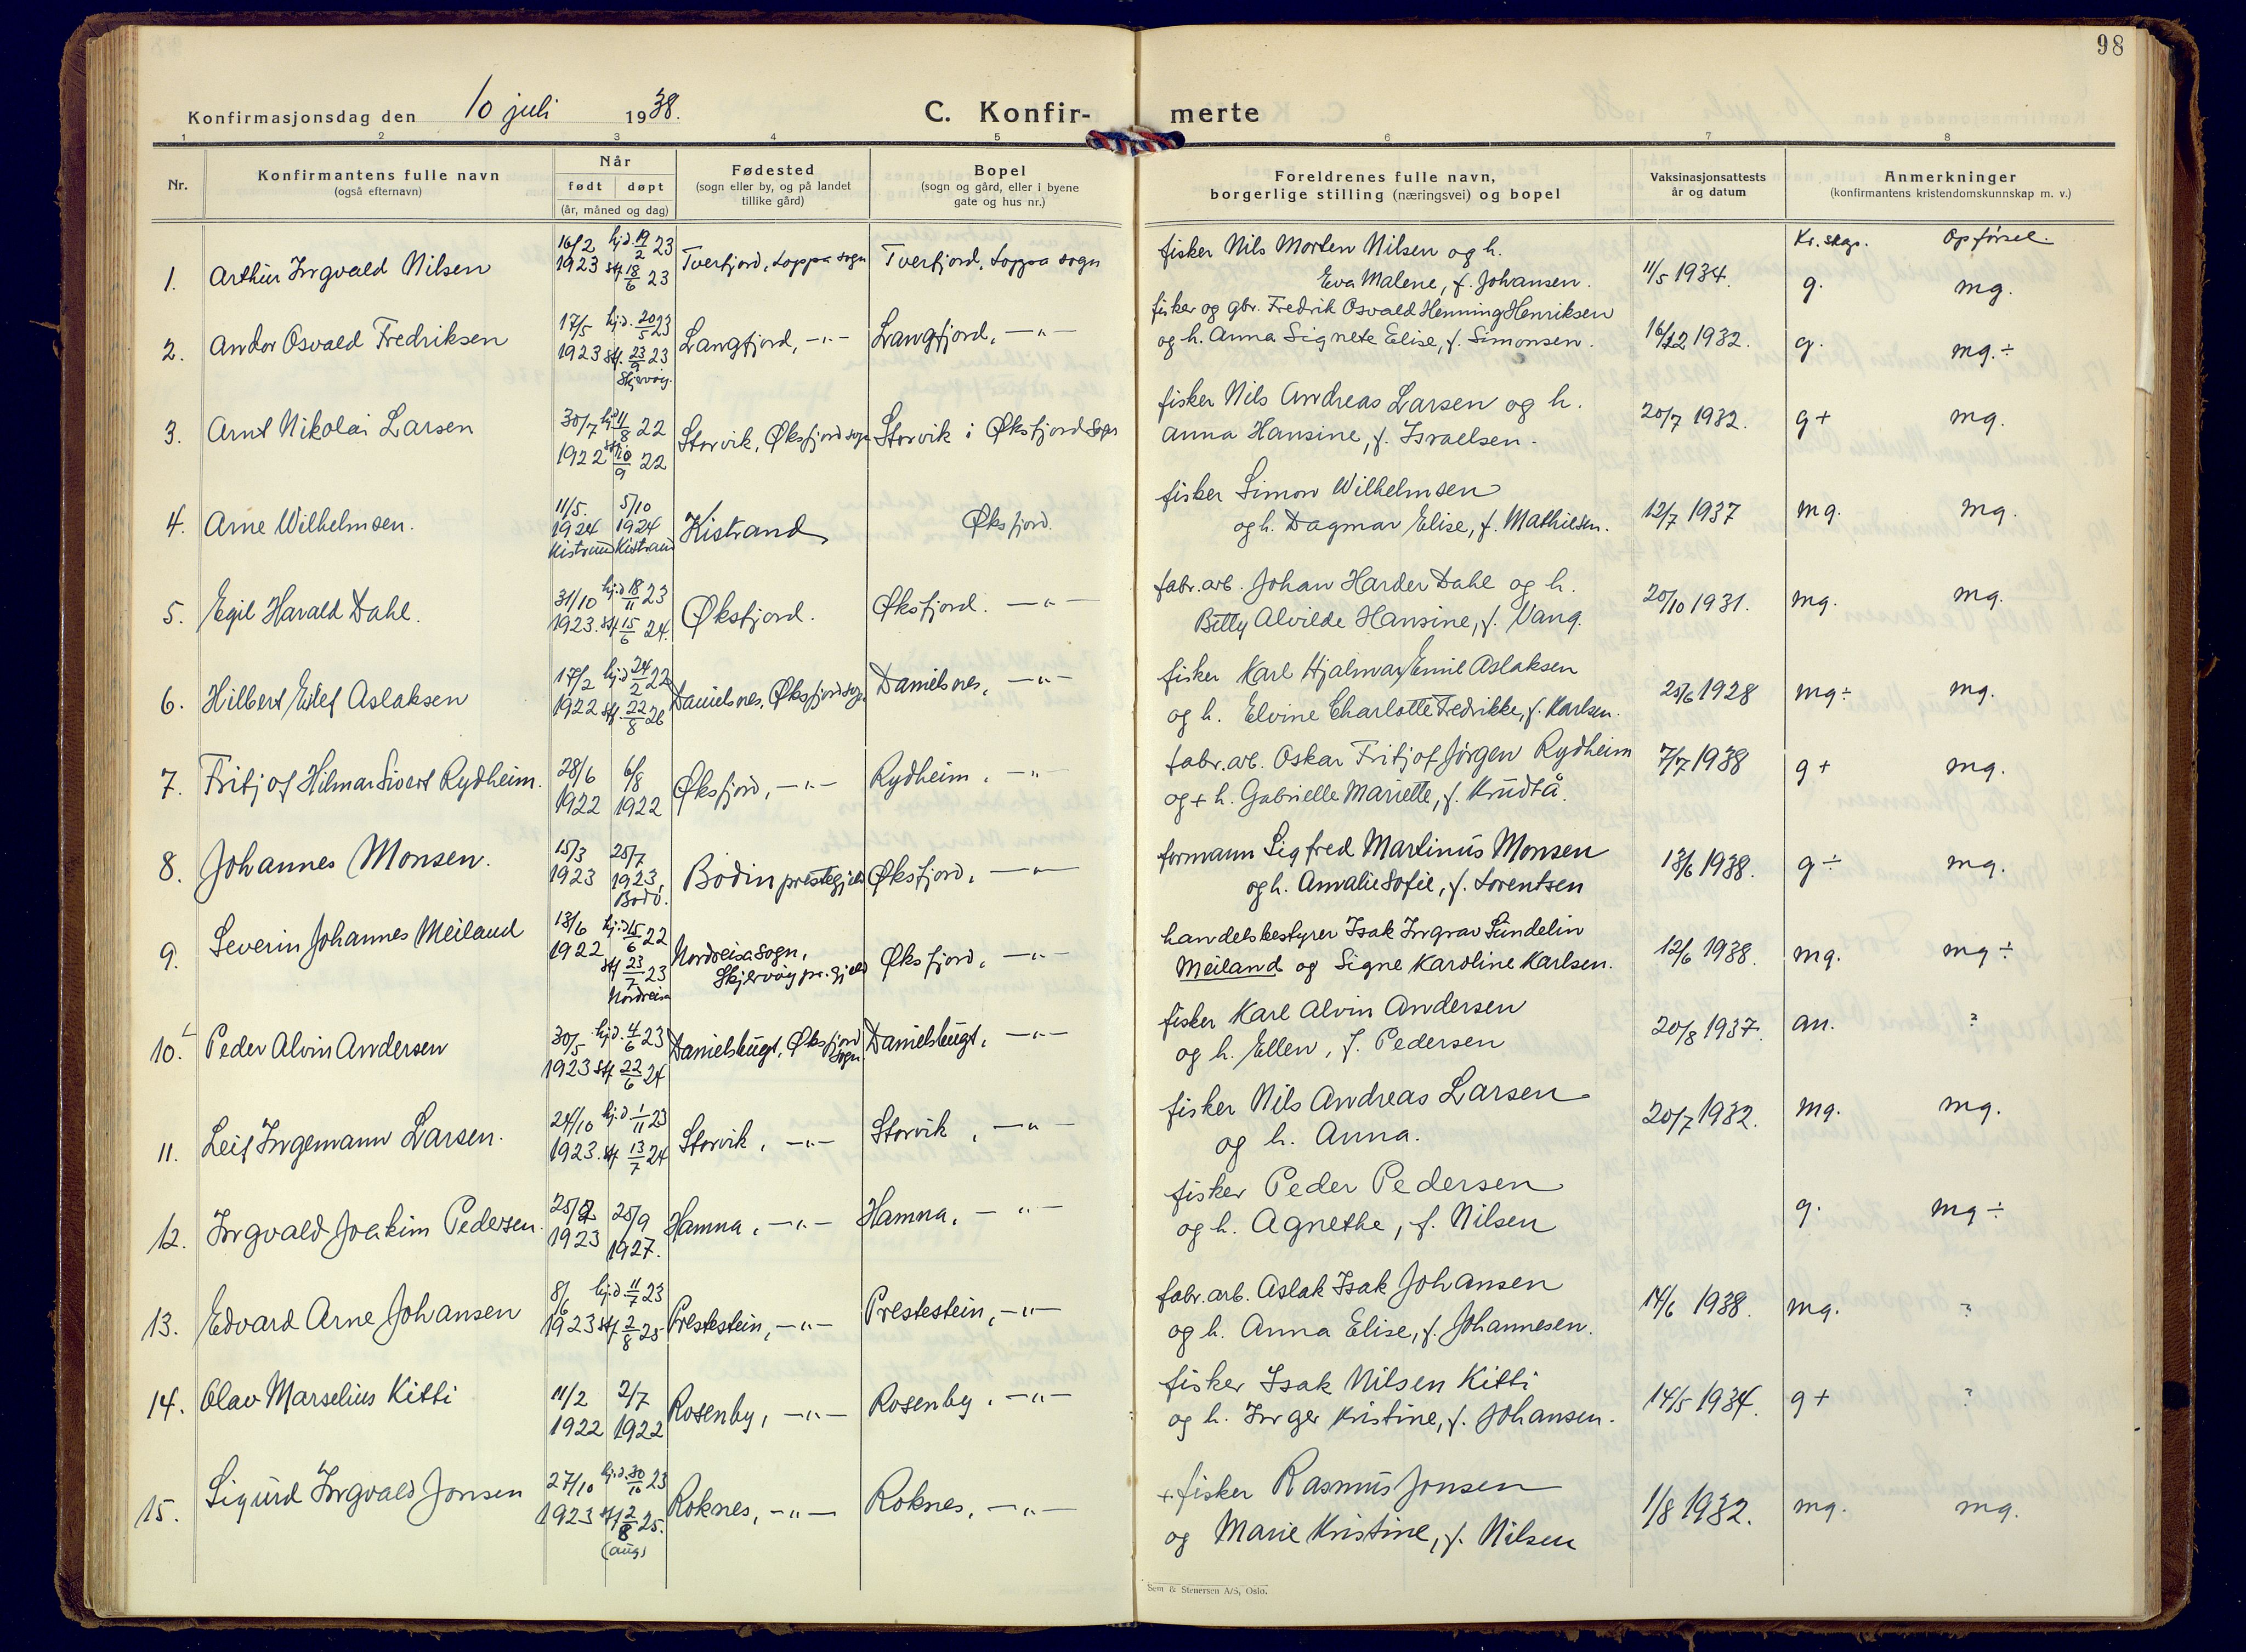 98
Konfirmasjonsdag den 10 juli 1938.
C. Konfir- merte
1 2 3 4 5 6 7 8
Nr.
Konfirmantens fulle navn
(også efternavn)
Når
født døpt
(år, måned og dag)
Fødested
(sogn eller by, og på landet
tillike gård)
Bopel
(sogn og gård, eller i byene
gate og hus nr.)
Foreldrenes fulle navn,
borgerlige stilling (næringsvei) og bopel
Vaksinasjonsattests
år og datum
Anmerkninger
(konfirmantens kristendomskunnskap m. v.)
Kr.skap. Opførsel.
1. Arthur Ingvald Nilsen 16/2 1923 hj.d. 19/2 23 stf. 18/6 23 Tverfjord, Loppa sogn Tverfjord, Loppa sogn
fisker Nils Morten Nilsen og h.
Eva Malene, f. Johansen. 11/5 1934. g. mg.
2. Andor Osvald Fredriksen 17/5 1923 hj.d. 20/5 23 stf. 23/9 23 Skjervøy. Langfjord, -"- Langfjord, -"-
fisker og gbr. Fredrik Osvald Henning Henriksen
og h. Anna Signete Elise, f. Simonsen. 16/12 1932. g. mg.÷
3. Arnt Nikolai Larsen 30/7 1922 hj.d. 11/8 22 stf. 10/9 22 Storvik, Øksfjord sogn Storvik i Øksfjord Sogn
fisker Nils Andreas Larsen og h.
Anna Hansine, f. Israelsen. 20/7 1932. g+ mg.
4. Arne Wilhelmsen. 11/5. 1924 Kistrand 5/10 1924 Kistrand Kistrand Øksfjord.
fisker Simon Wilhelmsen
og h. Dagmar Elise, f. Mathiesen. 12/7 1937 mg. mg.
5. Egil Harald Dahl. 31/10 1923. hj.d 18/11 23 stf. 15/6 24. Øksfjord. Øksfjord. -"-
fabr.arb. Johan Harder Dahl og h.
Betty Alvilde Hansine, f. Vang. 20/10 1931. mg. mg.
6. Hilbert Eilef Aslaksen 17/2 1922 hj.d 24/2 22 stf. 22/8 26 Danielsnes, Øksfjord sogn Danielsnes, -"-
fisker Karl Hjalmar Emil Aslaksen
og h. Elvine Charlotte Fedrikke, f. Karlsen. 25/6 1928 mg÷ mg.
7. Fritjof Hilmar Sivert Rydheim. 28/6 1922 6/8 1922 Øksfjord, -"- Rydheim, -"-
fabr.arb. Oskar Fritjof Jørgen Rydheim
og + h. Gabrielle Mariette, f. Krudtå. 7/7 1938 g+ mg.
8. Johannes Monsen. 15/3 1923 25/7 1923, Bodø. Bodin prestegjeld Øksfjord, -"-
formann Sigfred Martinus Monsen
og h. Amalie Sofie, f. Lorentsen 13/6 1938. g÷ mg.
9. Severin Johannes Meiland 13/6 1922 hj.d 15/6 22 stf 23/7 23 Nordreisa Nordreisa Sogn, Skjervøy pr.gjeld Øksfjord, -"-
handelsbestyrer Isak Ingvar Sundelin
Meiland og Signe Karoline Karlsen. 12/6 1938. mg. mg÷
10. Peder Alvin Andersen 30/5 1923 hj.d. 4/6 23 stf 22/6 24 Danielsbugt, Øksfjord Sogn Danielsbugt, -"-
fisker Karl Alvin Andersen
og h. Ellen, f. Pedersen 20/8 1937. an. ?
11. Leif Ingemann Larsen. 24/10 1923. hj.d. 1/11 23 stf 13/7 24 Storvik, -"- Storvik, -"-
fisker Nils Andreas Larsen
og h. Anna. 20/7 1932. mg. mg.
12. Ingvald Joakim Pedersen. 1923 25/9 1927. Hamna, -"- Hamna, -"-
fisker Peder Pedersen
og h. Agnethe, f. Nilsen g. mg÷
13. Edvard Arne Johansen 8/6 1923 hj.d 11/7 23 stf 2/8 25 Prestestein, -"- Prestestein, -"-
fabr.arb. Aslak Isak Johansen
og h. Anna Elise, f. Johannesen. 14/6 1938. mg. ?
14. Olav Marselius Kitti 11/2 1922 2/7 1922 Rosenby, -"- Rosenby, -"-
fisker Isak Nilsen Kitti
og h. Inger Kristine, f. Johansen. 14/5 1934. g+ ?
15. Sigurd Ingvald Jonsen 27/10 1923 hj.d. 30/10 23 stf 2/8 25. (aug) Roknes, -"- Roknes, -"-
+ fisker Rasmus Jonsen
og Marie Kristine, f. Nilsen 1/8 1932. mg. mg.
Sem & Stenersen A/S, Oslo.